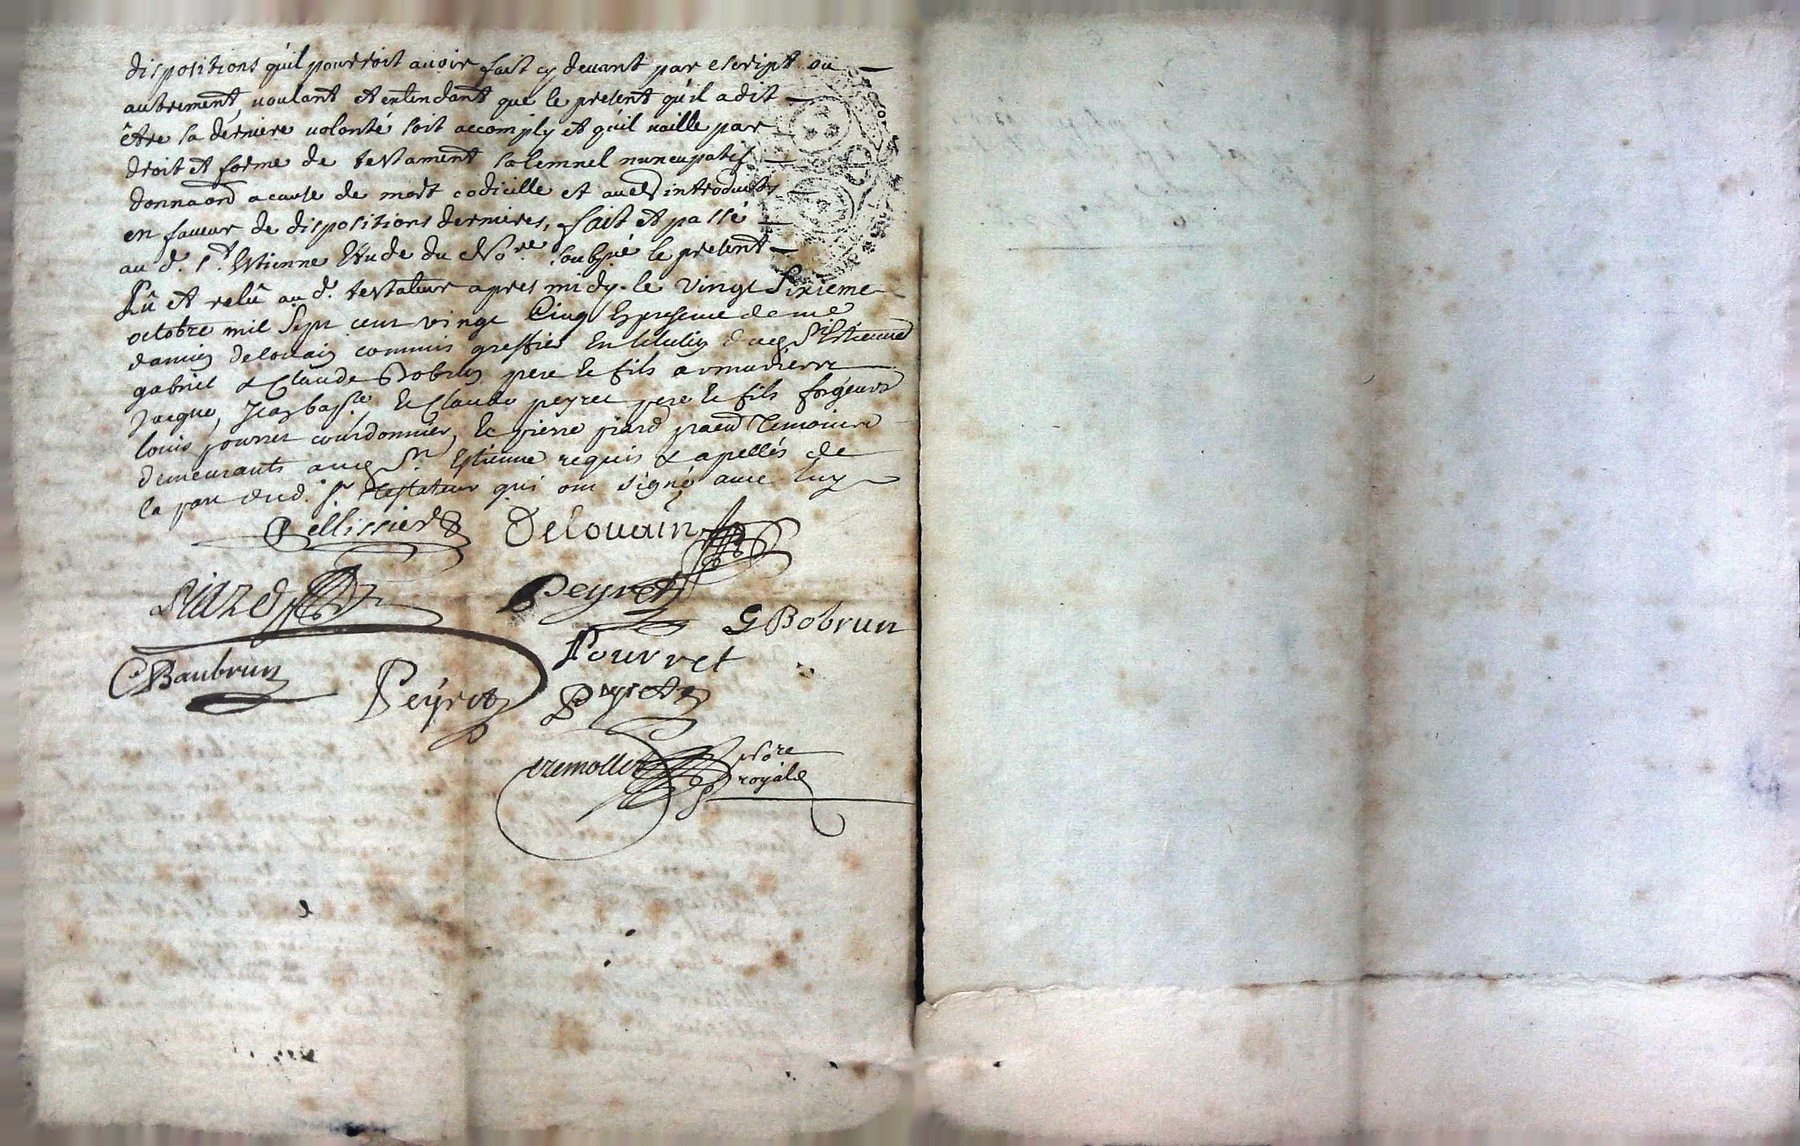 dispositions qu'il pourroit auoir fait cy deuant par escript ou
autrement, uoulant et entendant que le present qu'il a dit
être sa derniere uolonté soit accomply et qu'il uaille par
droit et forme de testament solemnel nuncupatif
donnaõn a cause de mort codicille et aues introduits
en faueur de dispositions dernieres, fait et passé
au d. St. Estienne Etude du Nore. soubsné le present
Lû et relû au d. testateur apres midy. le vingt sixieme
octobre mil sept cent vingt Cinq En presence de me
damien delouain commis greffier En d'aud St Estienne
gabriel & Claude Bobrun pere et fils armuriers
Jacque, Jean bapte. et Claude peyret pere et fils forgeurs
louis pourret courdonnier, et pierre piard temoins
demeurants aud St. Estienne requis & apellés de
la part dud. sr. testateur qui ont signé auec luy
Pellissier Delouain
Piard Peyret
G Bobrun
Pourret
C Baubrun
Peÿret Peyret
Tremollet Nore
royal